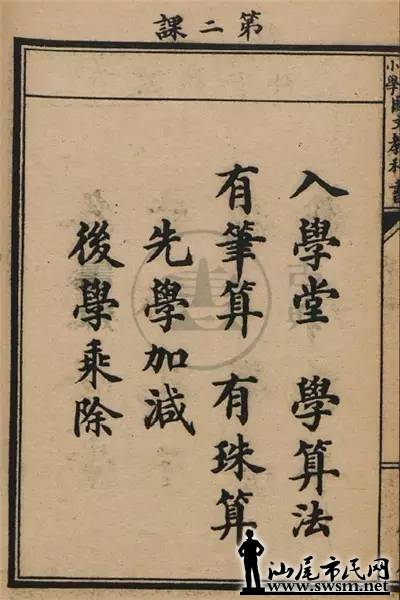 第二課
小學國文教科書
入學堂 學算法
有筆算 有珠算
先學加減
後學乘除
汕尾市民网
www.swsm.net